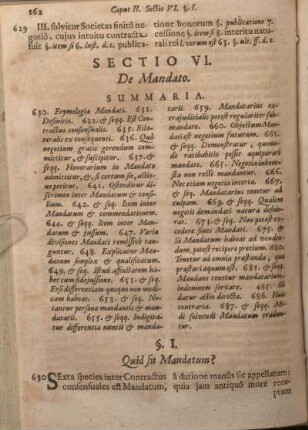 262 Caput II. Sectio VI. §. I.
629 III. solvitur Societas finitô ne-
gotiô, cujus intuitu contracta
fuit §. item si 6. Inst. d. t. publica-
tione bonorum §. publicatione 7.
cessione §. item si 8. interitu natu-
rali rei l. verum est 63. §. ult. ff. d. t.
SECTIO VI.
De Mandato.
SUMMARIA.
630. Etymologia Mandati. 631.
Definitio. 632. & seqq. Est Con-
tractus consensualis. 635. Bila-
teralis ex consequenti. 636. Qui
negotium gratis gerendum com-
mittitur, & suscipitur. 637. &
seqq. Honorarium in Mandato
admittitur, &, si certum sit, actio-
ne petitur. 641. Ostenditur di-
scrimen inter Mandatum & con-
silium. 642. & seq. Item inter
Mandatum & commendationem.
644. & seqq. Item inter Man-
datum & jussum. 647. Varia
divisiones Mandati remissivè tan-
guntur. 648. Explicatur Man-
datum simplex & qualificatum.
649. & seq. Istud affinitatem ha-
bet cum fidejussione. 652. & seq.
Est differentiam quoque non modi-
cam habeat. 653. & seq. No-
tantur persona mandantis & man-
datarii. 655. & seqq. Indigita-
tur differentia nuntii & manda-
tarii. 659. Mandatarius ex-
trajudicialis potest regulariter sub-
mandare. 660. Objectum Man-
dati est negotium futurum. 661.
& seqq. Demonstratur, quomo-
do ratihabitio possit æquiparari
mandati. 665. Negotia inhones-
ta non rectè mandantur. 666.
Nec etiam negotia incerta. 667.
& seq. Mandatarius tenetur ad
culpam. 669. & seqq. Qualem
negotii demandati natura deside-
rat. 673. & seq. Non potest ex-
cedere fines Mandati. 675. &
si Mandatum habeat ad venden-
dum, potest recipere pretium. 680.
Tenetur ad omnia præstanda, qua
præstari æquum est. 681. & seqq.
Mandans tenetur mandatarium
indemnem servare. 685. Il-
datur actio directa. 686. Huic
contraria. 687. & seqq. Mo-
di solvendi Mandatum tradun-
tur.
§. I.
Quid sit Mandatum?
630 SExta species inter Contractus
consensuales est Mandatum,
à datione manus sic appellatum:
quia jam antiquô more rece-
ptum